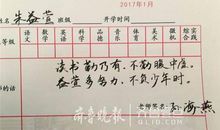 2017年1月
朱益萱 班级 开学时间
语文 数学 英语 科学 品德 音乐 体育 美术 微机 综合实践
读书勤乃有，不勤腹中虚。
益萱多努力，不负少年时。
的话
老师签名 海燕
齐鲁晚报